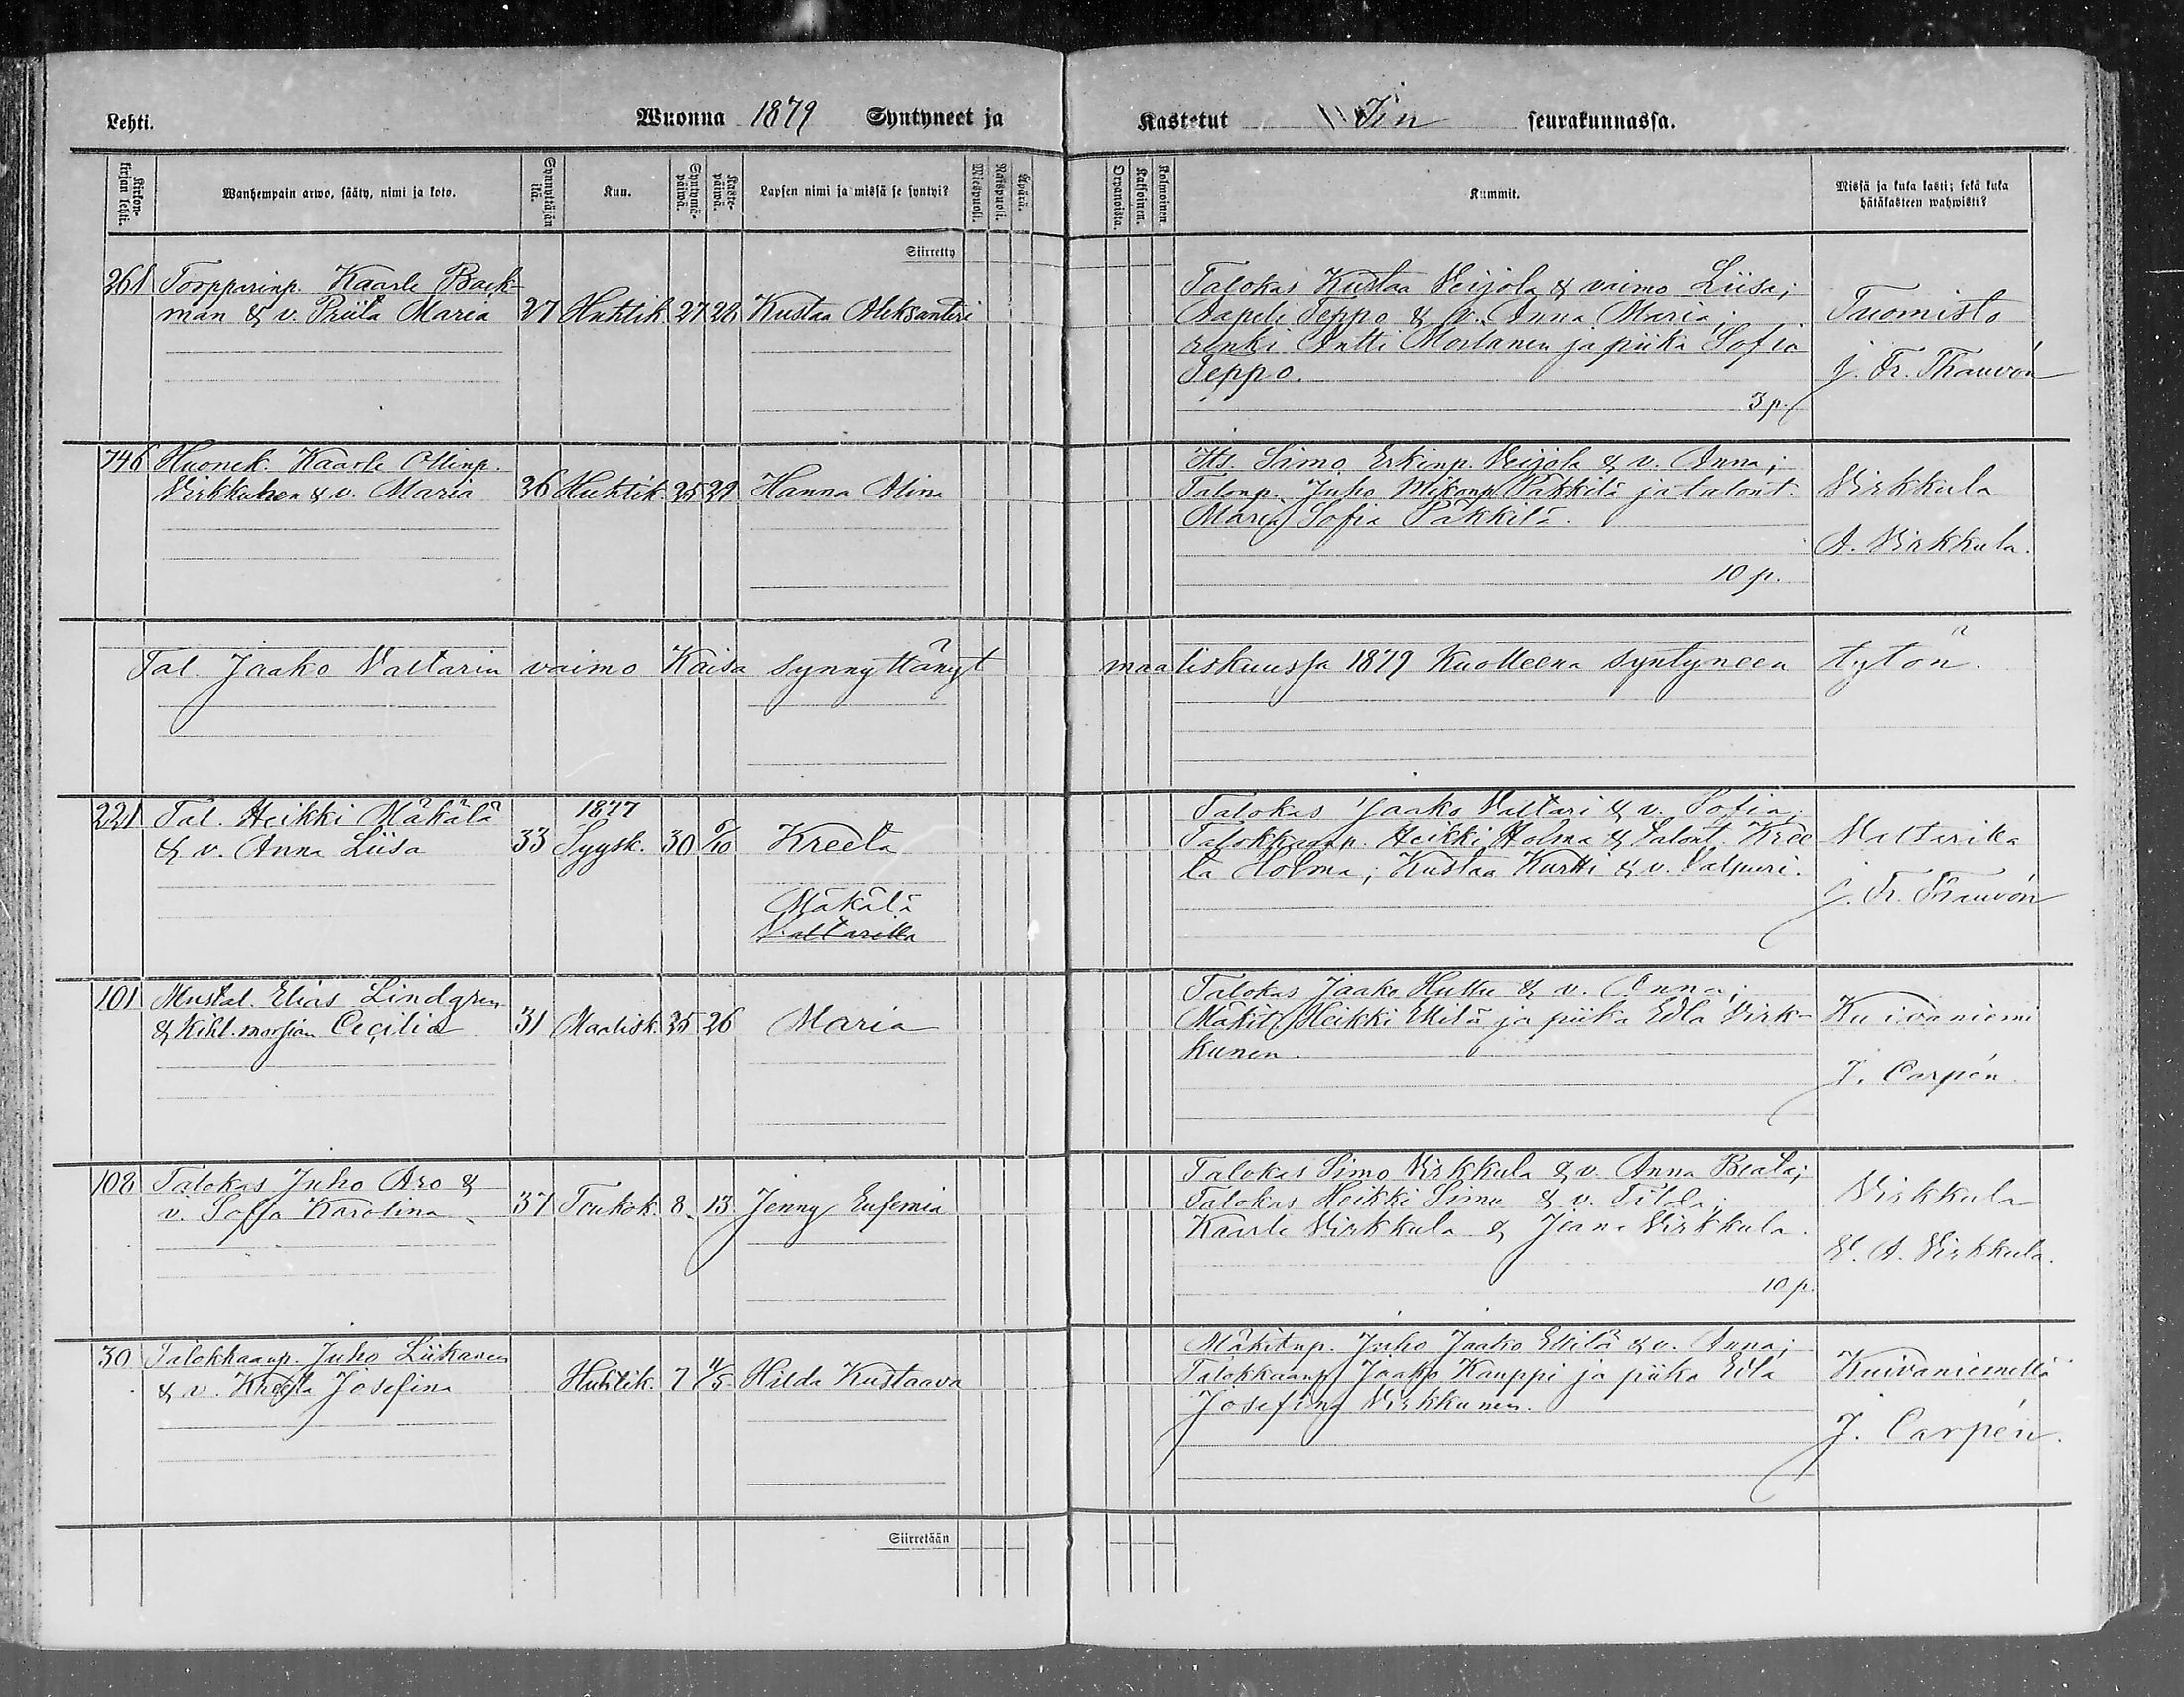 Lehti.
Wuonna 1879 Syntyneet ja
Kastetut Iin seurakunnassa.
Kirkon-kirjan lehti.
Wanhempain arwo, sääty, nimi ja koto.
Synnyttäjän ikä.
Kuu.
Syntymä-päivä.
Kaste-päivä.
Lapsen nimi ja missä se syntyi?
Miespuoli.
Naispuoli.
Äpärä.
Orpanoista.
Kaksoinen.
Kolmoinen.
Kummit.
Missä ja kuka kasti; sekä kuka
hätäkasteen wahwisti?
Siirretty
261 Torpparinp. Kaarle Back-
man & v. Priita Maria 27 Huhtik. 27 28 Kustaa Aleksanteri
Talokas Kustaa Veijola & vaimo Liisa;
Aapeli Teppo & v. Anna Maria;
renki Antti Moilanen ja piika Sofia
Teppo.
3 p.
Tuomisto
J. Fr. Thauvón
746 Huonek. Kaarle Ollinp.
Virkkunen & v. Maria 26 Huhtik. 25 29 Hanna Alina
Its. Simo Erkinp. Veijola & v. Anna;
Talonp. Juho Mikonp. Päkkilä ja talont.
Maria Sofia Päkkilä.
10 p.
Virkkula
A. Virkkula.
Tal. Jaako Valtarin vaimo Kaisa synnyttänyt maaliskuussa 1879 Kuolleena syntyneen tytön.
221 Tal. Heikki Mäkälä
& v. Anna Liisa 33 1877 Syysk. 30 6/10 Kreeta
Mäkälä
Valtarilla
Talokas Jaako Valtari & v. Sofia;
Talokkaanp. Heikki Holma & talont. Kree
ta Holma; Kustaa Kurtti & v. Valpuri.
Valtarilla
J. Fr. Thauvón
101 Mustal. Elias Lindgren
& Kihl. morsian Cecilia 31 Maalisk. 25 26 Maria
Talokas Jaako Huttu & v. Anna;
Mäkit. Heikki Ellilä ja piika Edla Virk-
kunen.
Kuivaniemi
J. Carpén.
108 Talokas Juho Aro &
v. Sofia Karolina 37 Toukok. 8. 13 Jenny Eufemia
Talokas Simo Virkkula & v. Anna Beata;
Talokas Heikki Simu & v. Tilda;
Kaarle Virkkula & Joana Virkkula.
10 p.
Virkkula
V. A. Virkkula.
30 Talokkaanp. Juho Liikanen
& v. Kreeta Josefina Huhtik. 7 11/5 Hilda Kustaava
Mäkitup. Juho Jaako Ellilä & v. Anna;
Talokkaanp. Jaako Kauppi ja piika Edla
Josefina Virkkunen.
Kuivaniemellä
J. Carpén.
Siirretään